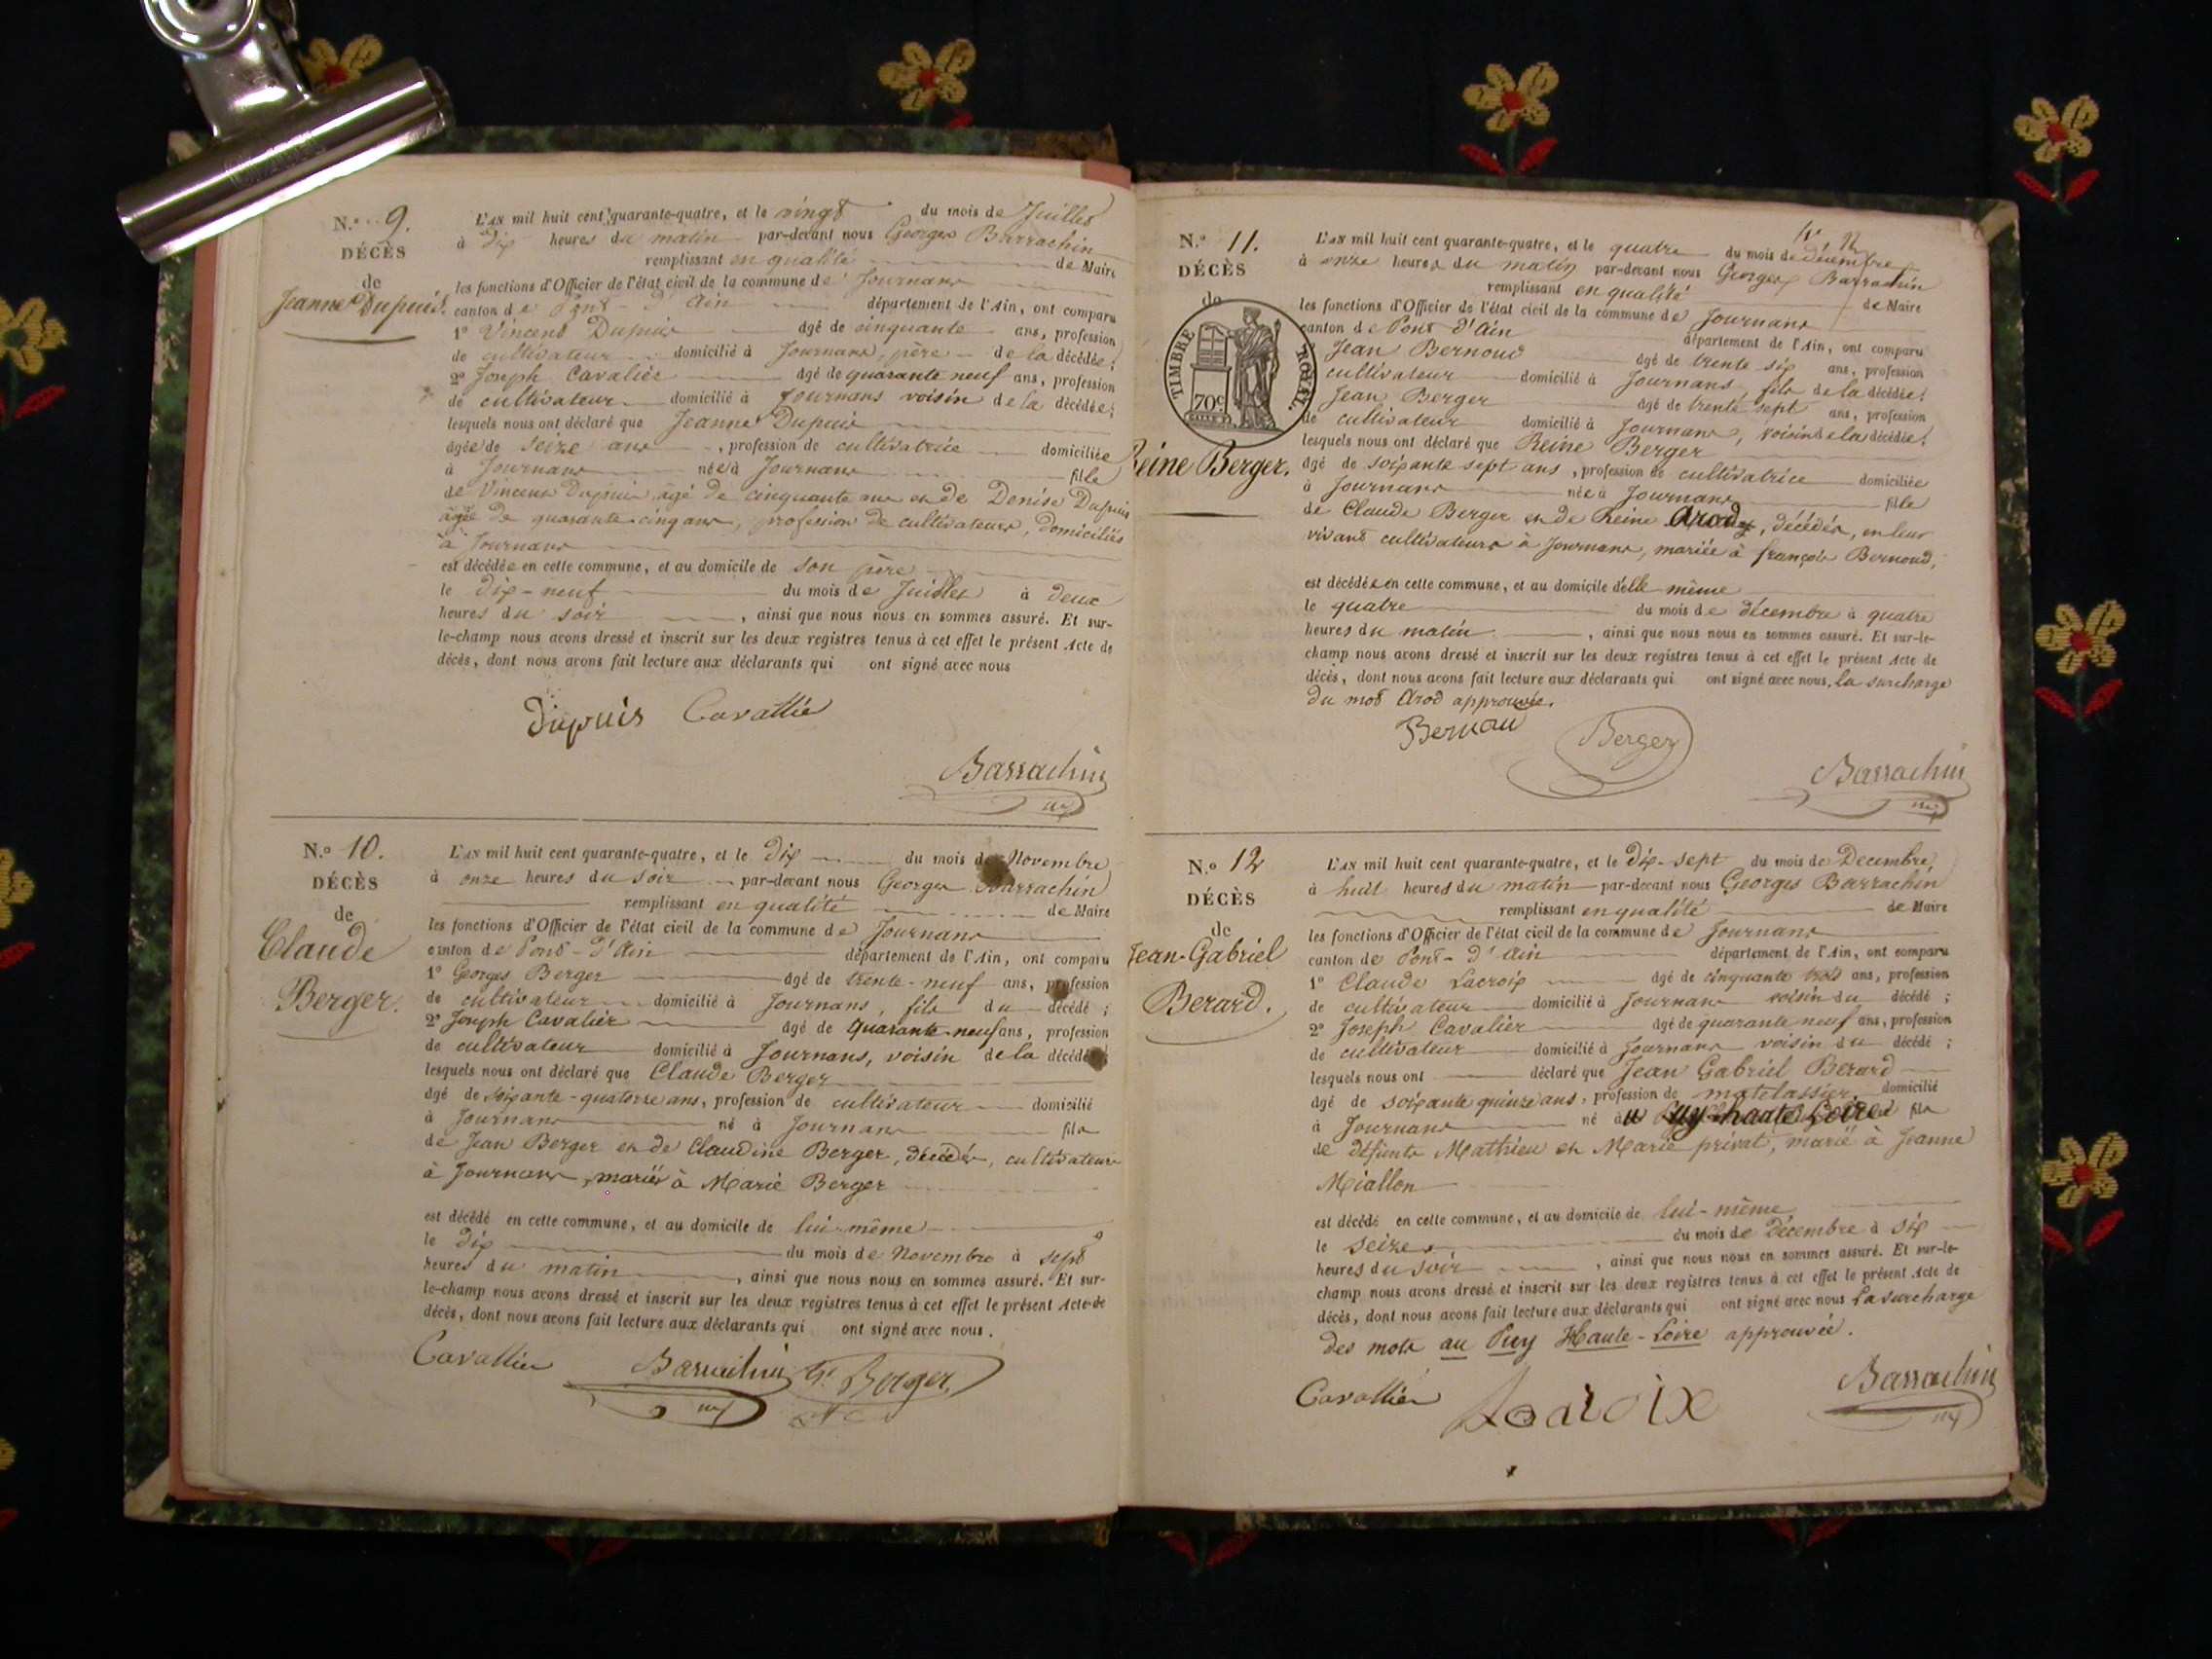 N.o 9.
DÉCÈS
de
Jeanne Dupuis.
L'AN mil huit cent quarante-quatre, et le vingt du mois de Juillet
à dix heures du matin par-devant nous Georges Barrachin
remplissant en qualité de Maire
les fonctions d'Officier de l'état civil de la commune de Journans
canton de Pont-d'Ain département de l'Ain, ont comparu
1o Vincent Dupuis âgé de cinquante ans, profession
de cultivateur domicilié à Journans, père de la décédée;
2o Joseph Cavalier âgé de quarante neuf ans, profession
de cultivateur domicilié à Journans voisin de la décédée;
lesquels nous ont déclaré que Jeanne Dupuis
âgée de seize ans, profession de cultivatrice domiciliée
à Journans née à Journans fille
de Vincent Dupuis âgé de cinquante ans et de Denise Dupuis
âgée de quarante-cinq ans, profession de cultivateurs, domiciliés
à Journans
est décédée en cette commune, et au domicile de son père
le dix-neuf du mois de Juillet à deux
heures du soir, ainsi que nous nous en sommes assuré. Et sur-
le-champ nous avons dressé et inscrit sur les deux registres tenus à cet effet le présent Acte de
décès, dont nous avons fait lecture aux déclarants qui ont signé avec nous
Dupuis Cavallié
Barrachin
N.o 10.
DÉCÈS
de
Claude
Berger.
L'AN mil huit cent quarante-quatre, et le dix du mois de Novembre
à onze heures du soir par-devant nous Georges Barrachin
remplissant en qualité de Maire
les fonctions d'Officier de l'état civil de la commune de Journans
canton de Pont-d'Ain département de l'Ain, ont comparu
1o Georges Berger âgé de trente-neuf ans, profession
de cultivateur domicilié à Journans, fils du décédé;
2o Joseph Cavalier âgé de quarante-neuf ans, profession
de cultivateur domicilié à Journans, voisin de la décédé
lesquels nous ont déclaré que Claude Berger
âgé de soixante-quatorze ans, profession de cultivateur domicilié
à Journans né à Journans fils
de Jean Berger et de Claudine Berger, décédés, cultivateurs
à Journans, mariés à Marie Berger
est décédé en cette commune, et au domicile de lui-même
le dix du mois de Novembre à sept
heures du matin, ainsi que nous nous en sommes assuré. Et sur-
le-champ nous avons dressé et inscrit sur les deux registres tenus à cet effet le présent Acte de
décès, dont nous avons fait lecture aux déclarants qui ont signé avec nous.
Cavallier Barrachin G. Berger
N.o 11.
DÉCÈS
de
TIMBRE ROYAL.
70c
Reine Berger.
L'AN mil huit cent quarante-quatre, et le quatre du mois de décembre
à onze heures du matin par-devant nous Georges Barrachin
remplissant en qualité de Maire
les fonctions d'Officier de l'état civil de la commune de Journans
canton de Pont d'Ain département de l'Ain, ont comparu
Jean Bernoud âgé de trente six ans, profession
cultivateur domicilié à Journans fils de la décédée;
Jean Berger âgé de trente sept ans, profession
de cultivateur domicilié à Journans, voisin de la décédée;
lesquels nous ont déclaré que Reine Berger
âgé de soixante sept ans, profession de cultivatrice domiciliée
à Journans née à Journans fille
de Claude Berger et de Reine Arod, décédés, en leur
vivant cultivateurs à Journans, mariée à françois Bernoud,
est décédée en cette commune, et au domicile d'elle même
le quatre du mois de décembre à quatre
heures du matin, ainsi que nous nous en sommes assuré. Et sur-le-
champ nous avons dressé et inscrit sur les deux registres tenus à cet effet le présent Acte de
décès, dont nous avons fait lecture aux déclarants qui ont signé avec nous, la surcharge
du mot Arod approuvée.
Bernau Berger
Barrachin
N.o 12
DÉCÈS
de
Jean-Gabriel
Berard.
L'AN mil huit cent quarante-quatre, et le dix-sept du mois de Decembre
à huit heures du matin par-devant nous Georges Barrachin
remplissant en qualité de Maire
les fonctions d'Officier de l'état civil de la commune de Journans
canton de Pont-d'Ain département de l'Ain, ont comparu
1o Claude Lacroix âgé de cinquante trois ans, profession
de cultivateur domicilié à Journans voisin du décédé;
2o Joseph Cavalier âgé de quarante neuf ans, profession
de cultivateur domicilié à Journans voisin du décédé;
lesquels nous ont déclaré que Jean Gabriel Berard
âgé de soixante quinze ans, profession de matelassier, domicilié
à Journans né au Puy haute Loire fils
de défunts Mathieu et Marie privat, marié à Jeanne
Miallon
est décédé en cette commune, et au domicile de lui-même
le seize du mois de Décembre à six
heures du soir, ainsi que nous nous en sommes assuré. Et sur-le-
champ nous avons dressé et inscrit sur les deux registres tenus à cet effet le présent Acte de
décès, dont nous avons fait lecture aux déclarants qui ont signé avec nous La surcharge
des mots au Puy Haute-Loire approuvée.
Cavallier Lacroix Barrachin